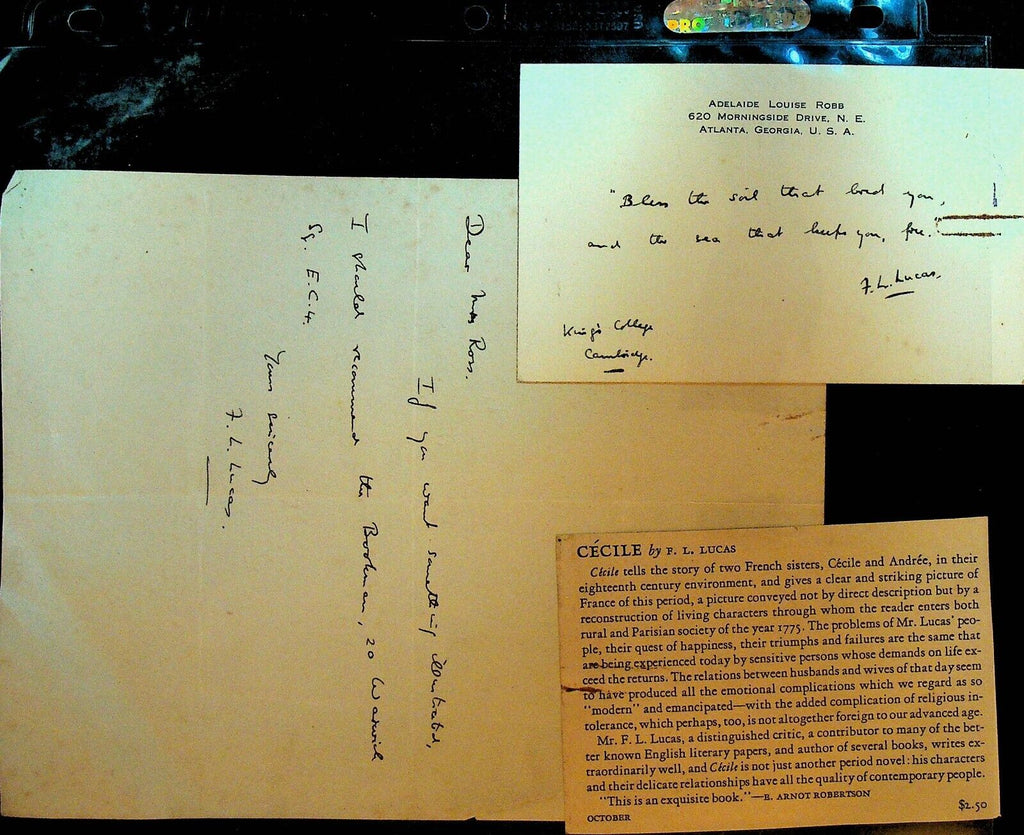 ADELAIDE LOUISE ROBB
620 MORNINGSIDE DRIVE, N. E.
ATLANTA, GEORGIA, U. S. A.
"Bless the soil that bred you,
and the sea that keeps you, free.
F. L. Lucas.
King's College
Cambridge.
Dear Miss Ross.
If you want something illustrated,
I should recommend the Bookman, 20 Warwick
Sq. E.C.4.
Yours sincerely
F. L. Lucas.
CÉCILE by F. L. LUCAS
Cécile tells the story of two French sisters, Cécile and Andrée, in their
eighteenth century environment, and gives a clear and striking picture of
France of this period, a picture conveyed not by direct description but by a
reconstruction of living characters through whom the reader enters both
rural and Parisian society of the year 1775. The problems of Mr. Lucas' peo-
ple, their quest of happiness, their triumphs and failures are the same that
are being experienced today by sensitive persons whose demands on life ex-
ceed the returns. The relations between husbands and wives of that day seem
to have produced all the emotional complications which we regard as so
"modern" and emancipated—with the added complication of religious in-
tolerance, which perhaps, too, is not altogether foreign to our advanced age.
Mr. F. L. Lucas, a distinguished critic, a contributor to many of the bet-
ter known English literary papers, and author of several books, writes ex-
traordinarily well, and Cécile is not just another period novel: his characters
and their delicate relationships have all the quality of contemporary people.
"This is an exquisite book."—E. ARNOT ROBERTSON
OCTOBER $2.50